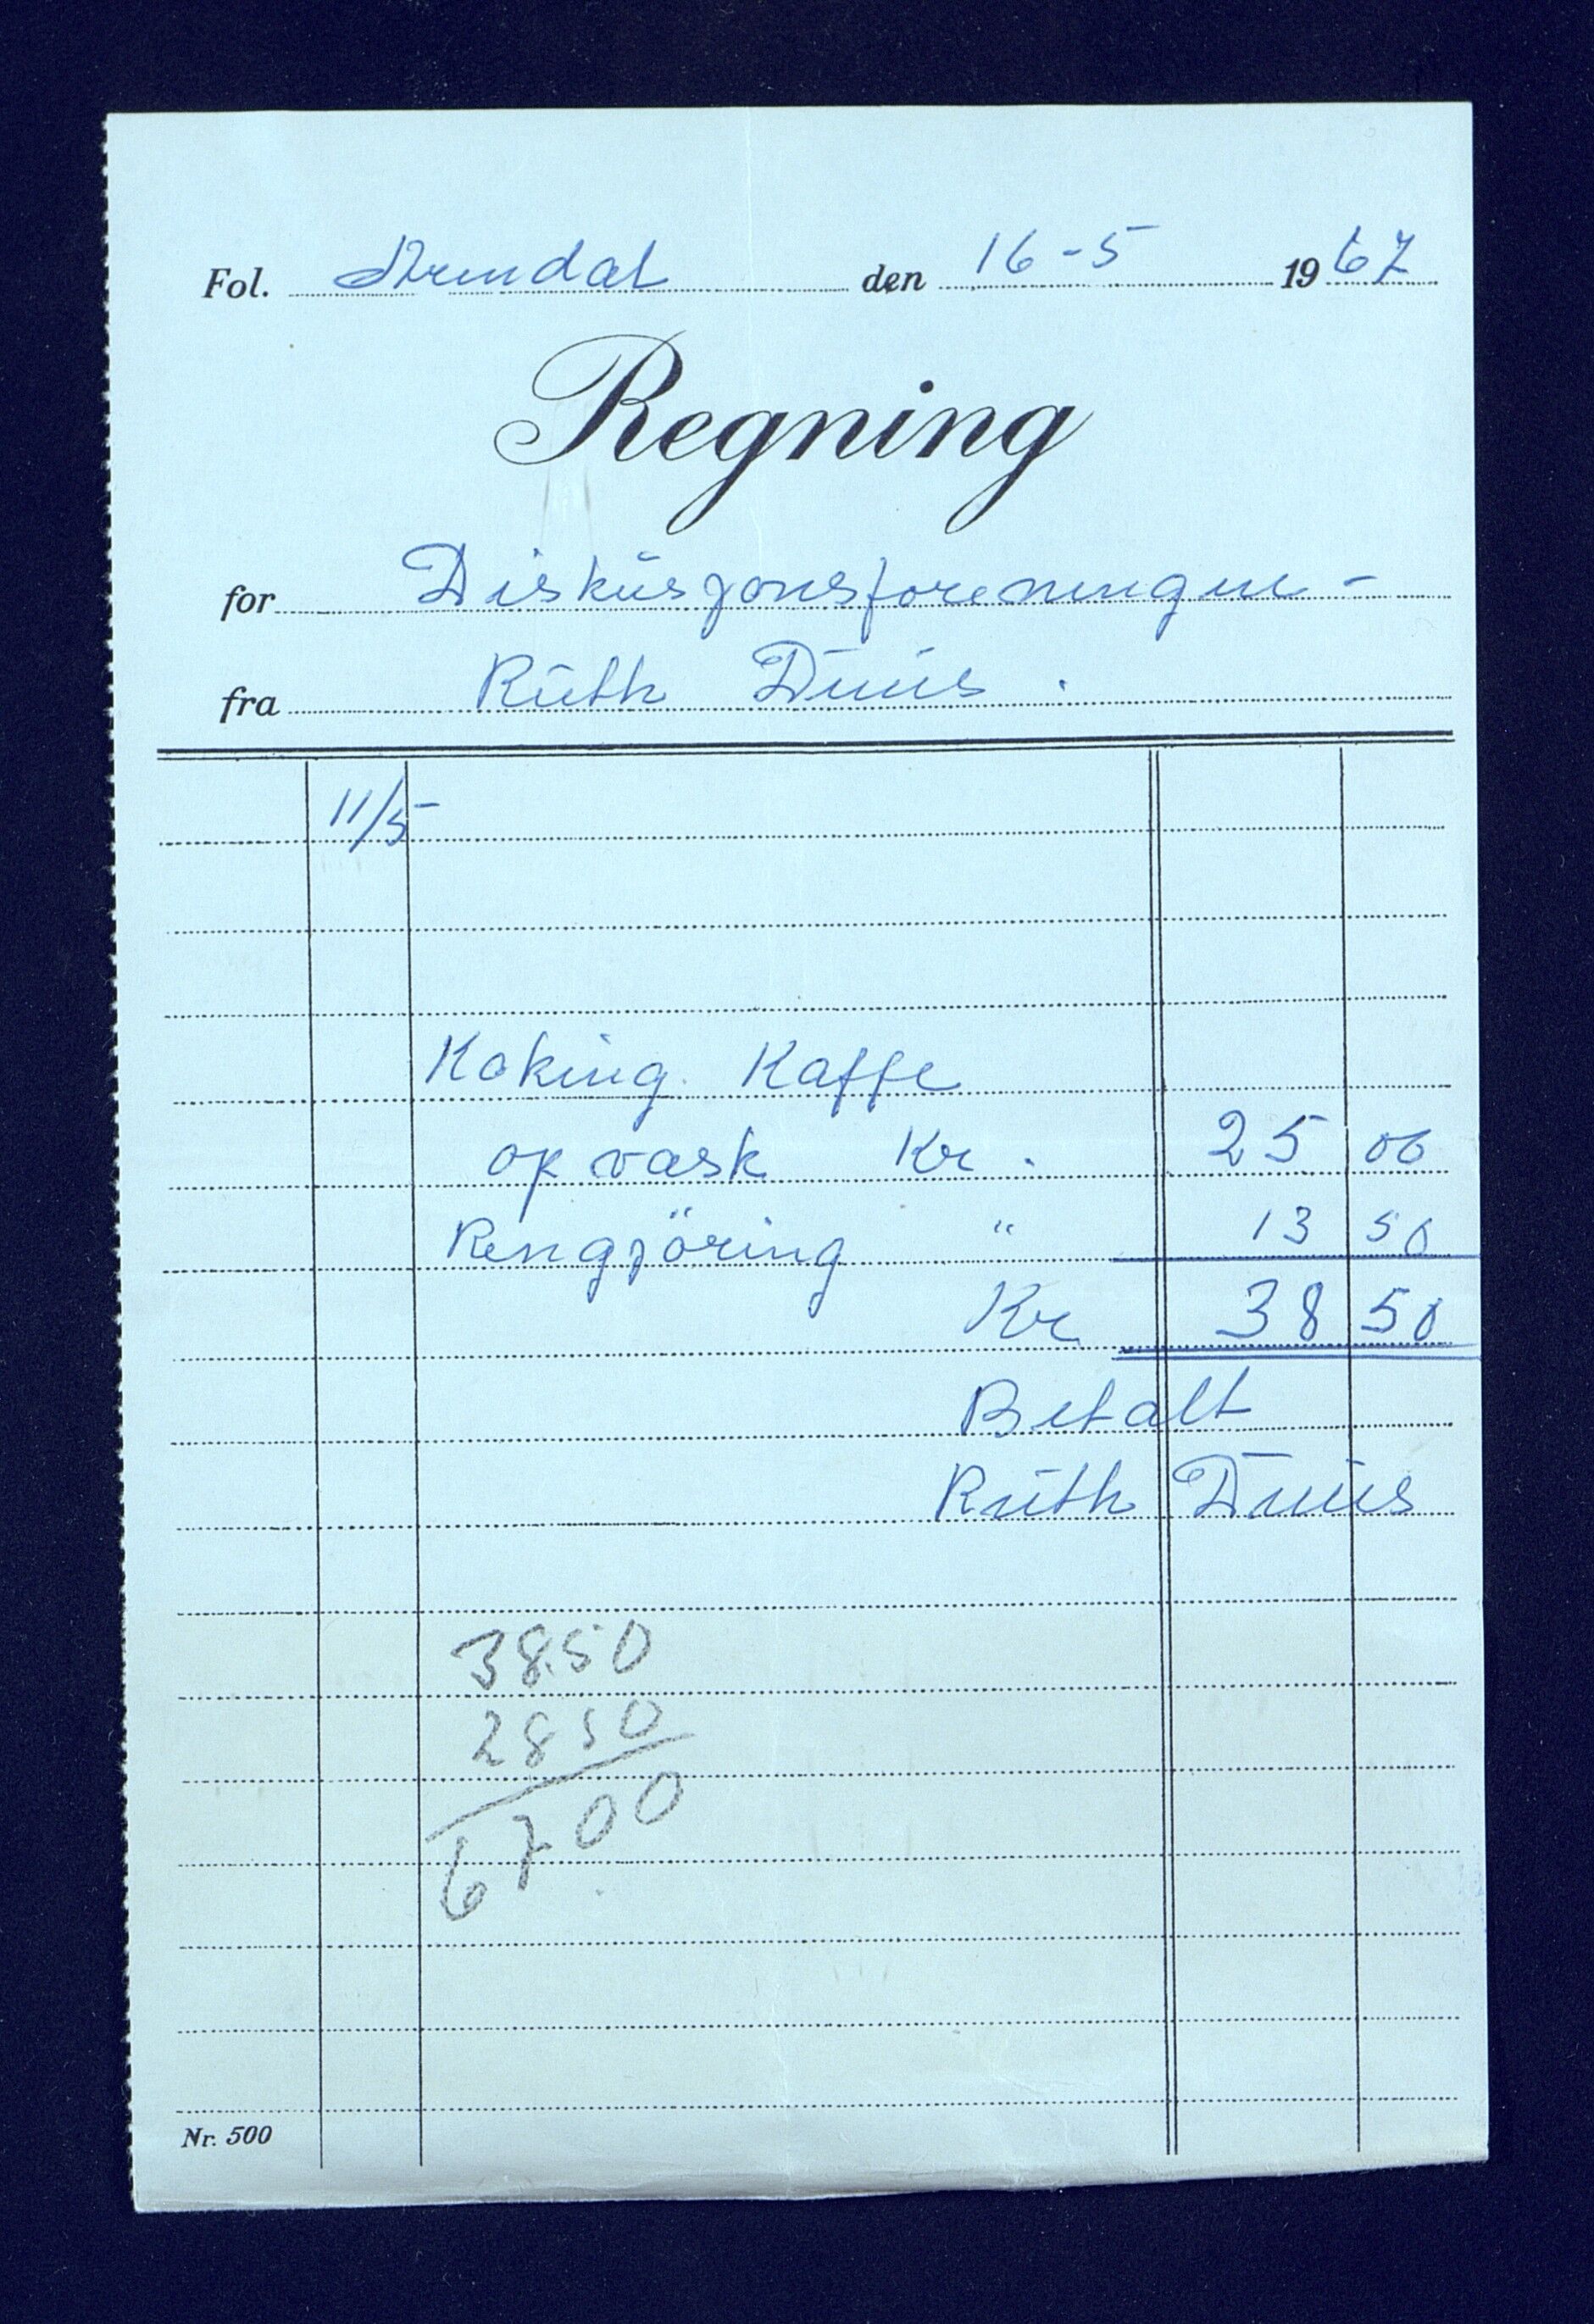 Fol. Arendal den 16-5 1967
Regning
for Diskusjonsforeningen -
fra Ruth Duus.
11/5
Koking Kaffe
opvask Kr. 25 00
Rengjöring " 13 50
Kr 38 50
Betalt
Ruth Duus
38.50
28 50
67 00
Nr. 500